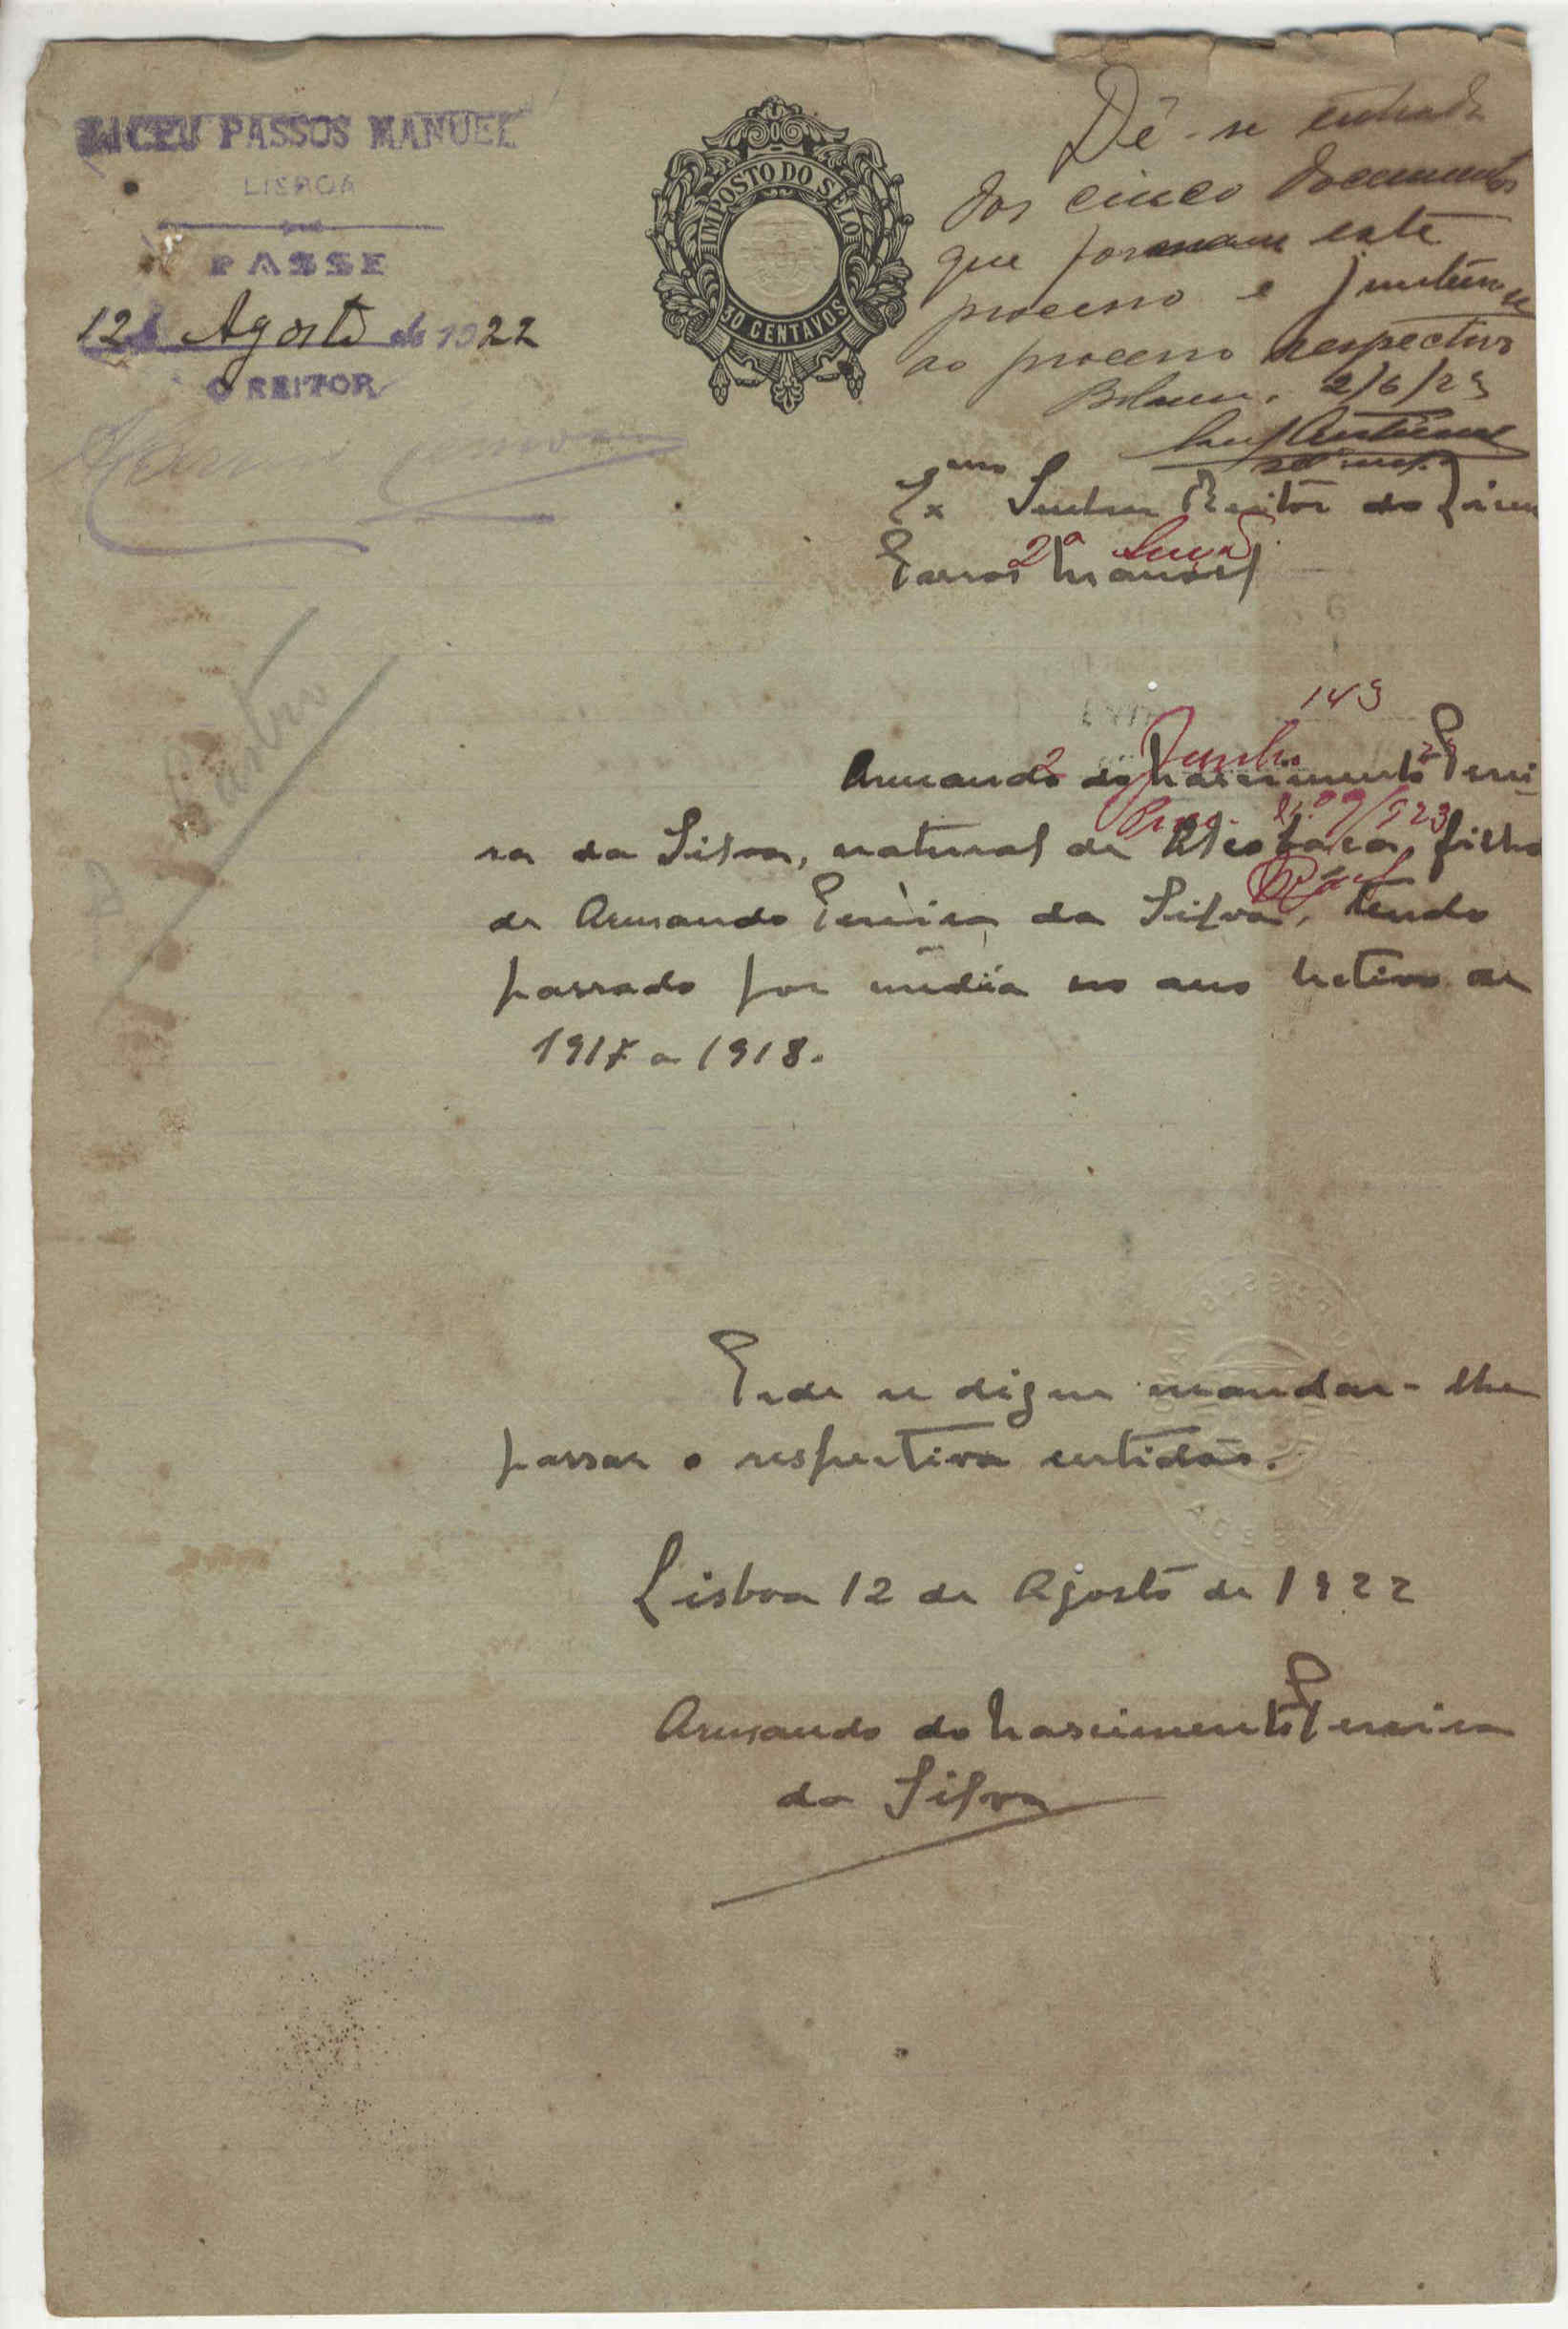 LICEU PASSOS MANUEL
LISBOA
PASSE
12 de Agosto de 1922
O REITOR
IMPOSTO DO SELO
30 CENTAVOS
Dê-se entrada
dos cinco documentos
que formam este
processo e juntem-se
ao processo respectivo
2/6/23
Exmo Senhor Reitor do Liceu
Passos Manuel
2ª
149
2 Junho 23
Proc. N.º 9/923
Armando do Nascimento Perei-
ra da Silva, natural de Alcobaça, filho
de Armando Pereira da Silva, tendo
passado por média no ano letivo de
1917 a 1918.
Pede se digne mandar-lhe
passar a respectiva certidão.
Lisboa 12 de Agosto de 1922
Armando do Nascimento Pereira
da Silva